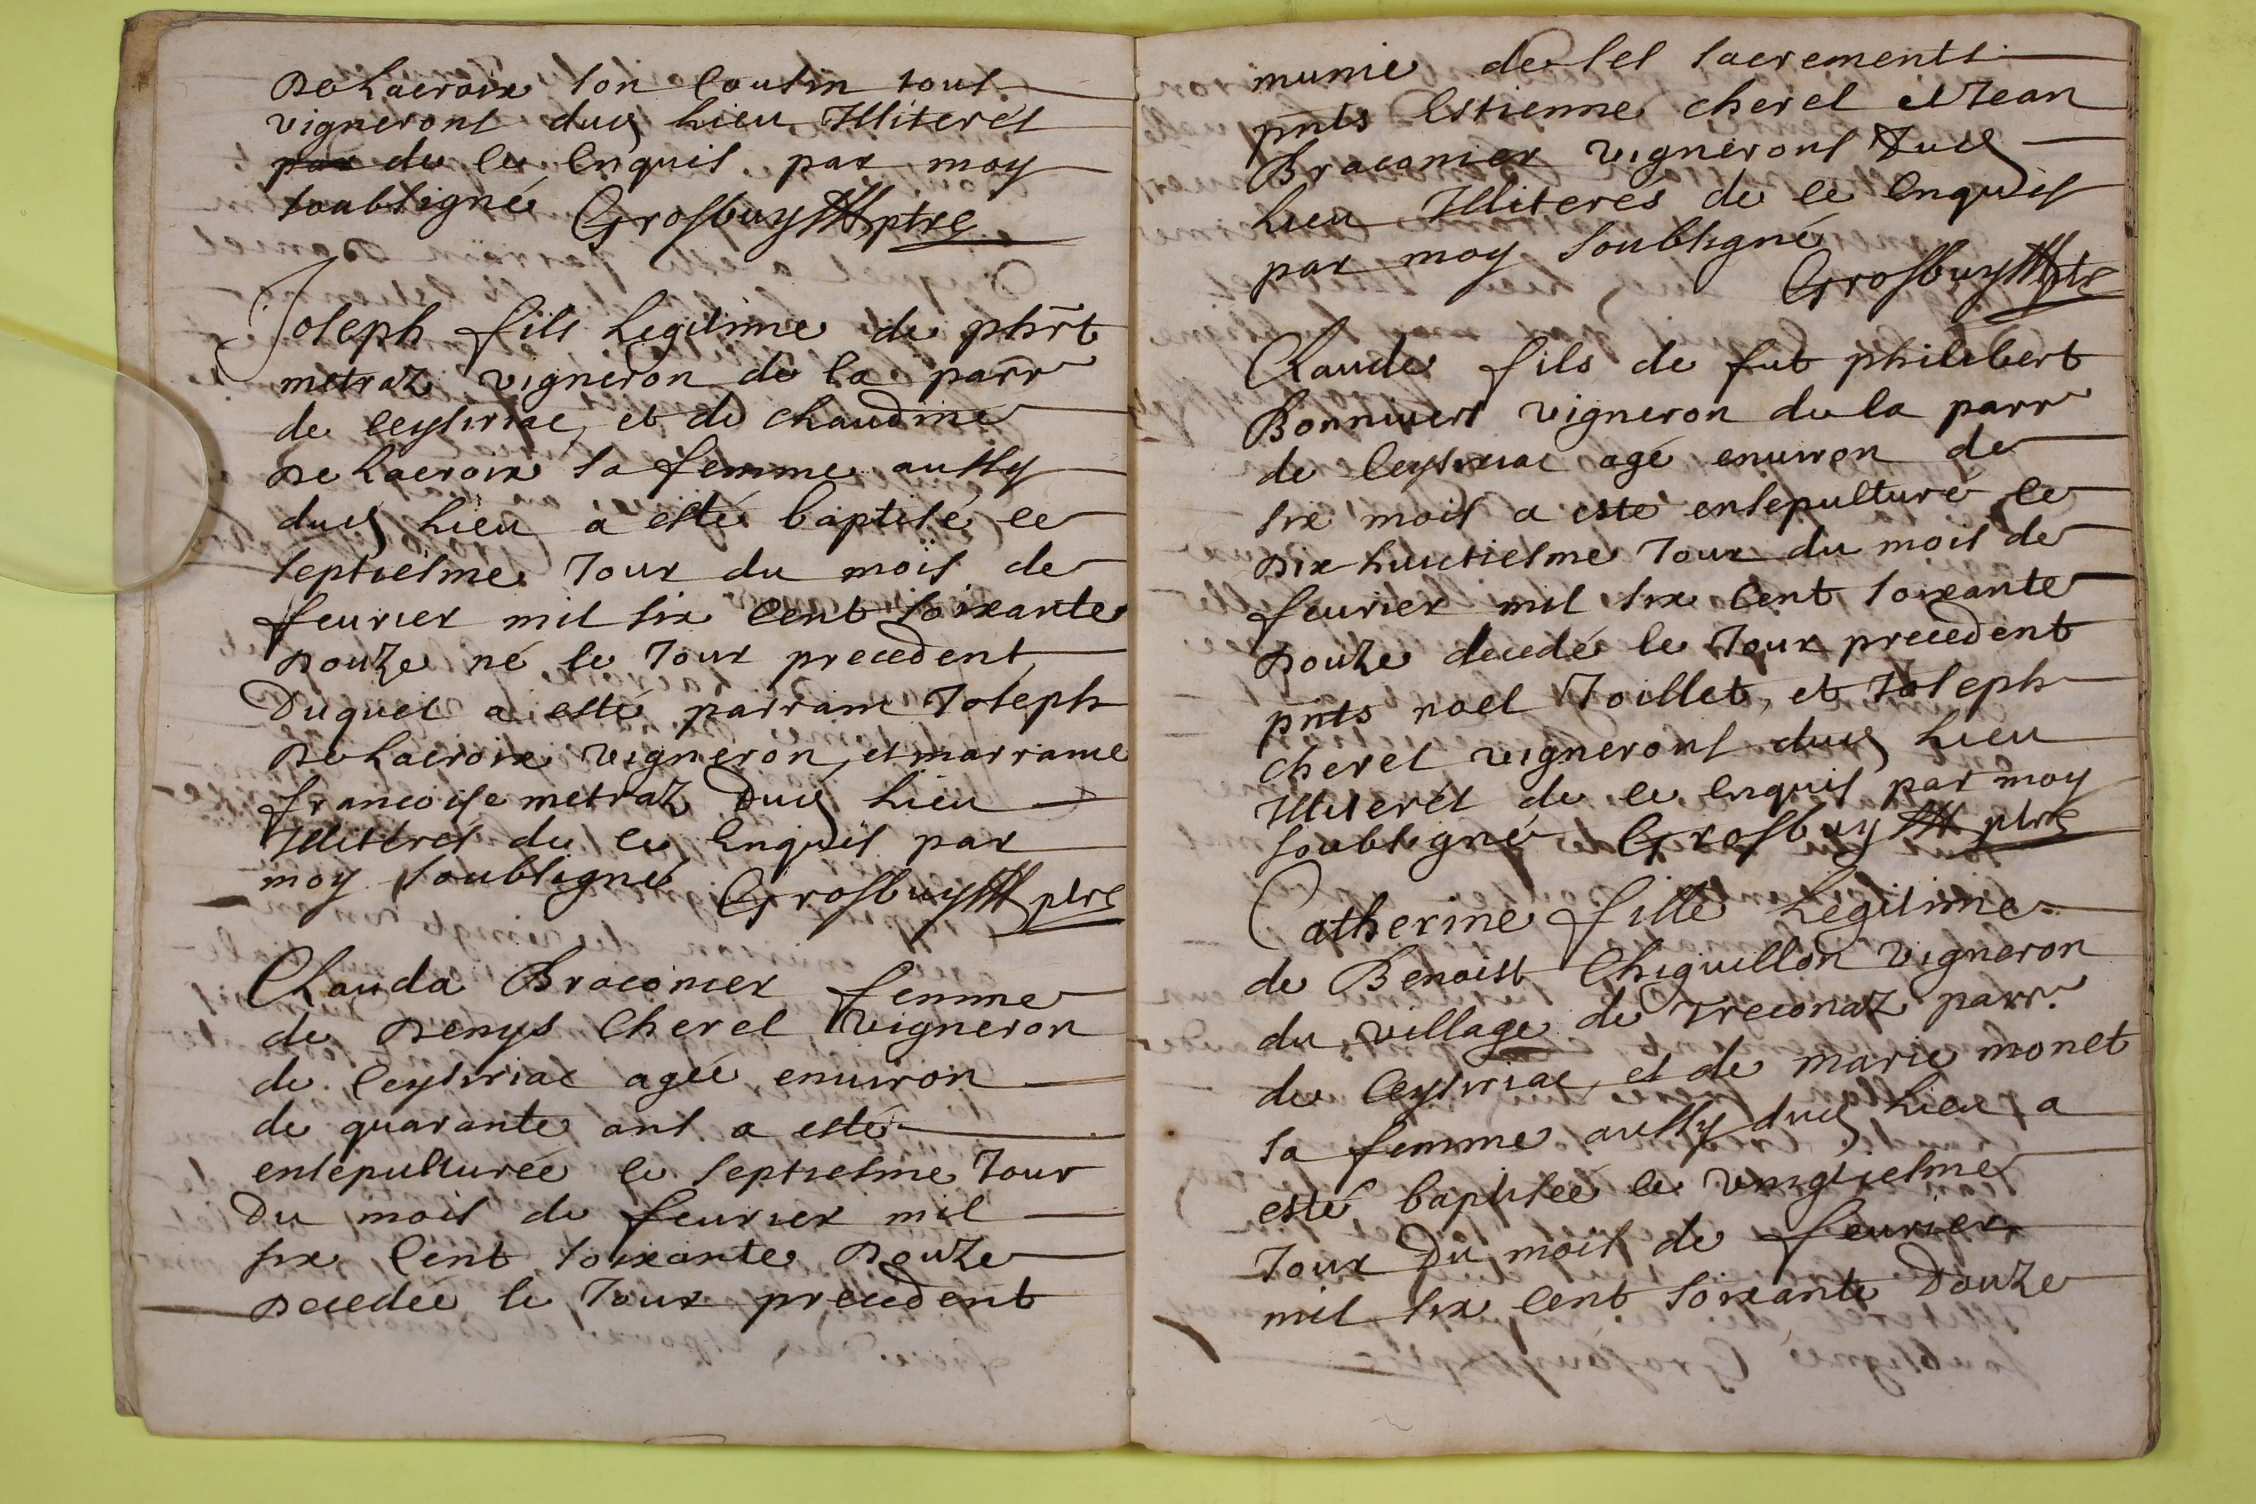 DeLacroix son Cousin tous
vignerons dud Lieu Illiterés
par de ce Enquis par moy
soubsigné Grosbuy ptre
Joseph fils Legitime de phr̄t
metraz vigneron de la parr
de Ceysiriac, et de Claudine
DeLacroix sa femme aussy
dud Lieu a esté baptisé le
septiesme Jour du mois de
feurier mil six Cent soixante
Douze né le Jour precedent,
Duquel a esté parrain Joseph
DeLacroix vigneron, et marraine
francoise metraz Dud Lieu
Illiterés de ce Enquis par
moy soubsigné Grosbuy ptre
Clauda Braconier femme
de Denys Cherel vigneron
de Ceysiriac agée enuiron
de quarante ans a esté
ensepulturée le septiesme Jour
Du mois de feurier mil
six Cent soixante Douze
Decedée le Jour precedent
munie de ses sacrements
pn̄ts Estienne cherel et Jean
Braconier vignerons Dud
Lieu Illiteres de ce Enquis
par moy soubsigné
Grosbuy ptre
Claude fils de fut philibert
Bonniuert vigneron de la parr
de Ceysiriac agé enuiron de
six mois a esté ensepulturé le
Dix huictiesme Jour du mois de
feurier mil six Cent soixante
Douze decedé le Jour precedent
pn̄ts noel Joillet, et Joseph
cherel vignerons dud Lieu
Illiterés de ce Enquis par moy
soubsigné Grosbuy ptre
Catherine fille Legitime
de Benoist Chiguillon vigneron
du village de Treconaz parr.
de Ceysiriac, et de marie monet
sa femme aussy dud Lieu a
esté baptisée le vingtiesme
Jour Du mois de feurier
mil six Cent soixante Douze